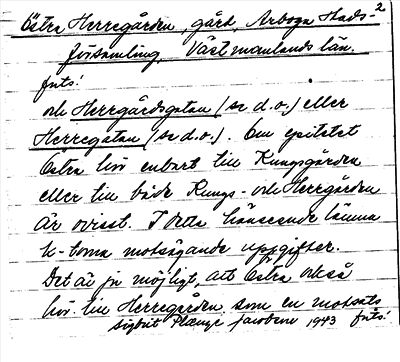 2
Östra Herregården, gård, Arboga Stads-
församling, Västmanlands län.
forts!
och Herrgårdsgatan (se d.o.) eller
Herregatan (se d.o.). Om epitetet
Östra hör enbart till Kungsgården
eller till både Kungs- och Herrgården
är ovisst. I detta hänseende lämna
k-torna motsägande uppgifter.
Det är ju möjligt, att Östra också
hör till Herregården som en motsats
Sigbrit Plænge Jacobson 1943 forts!